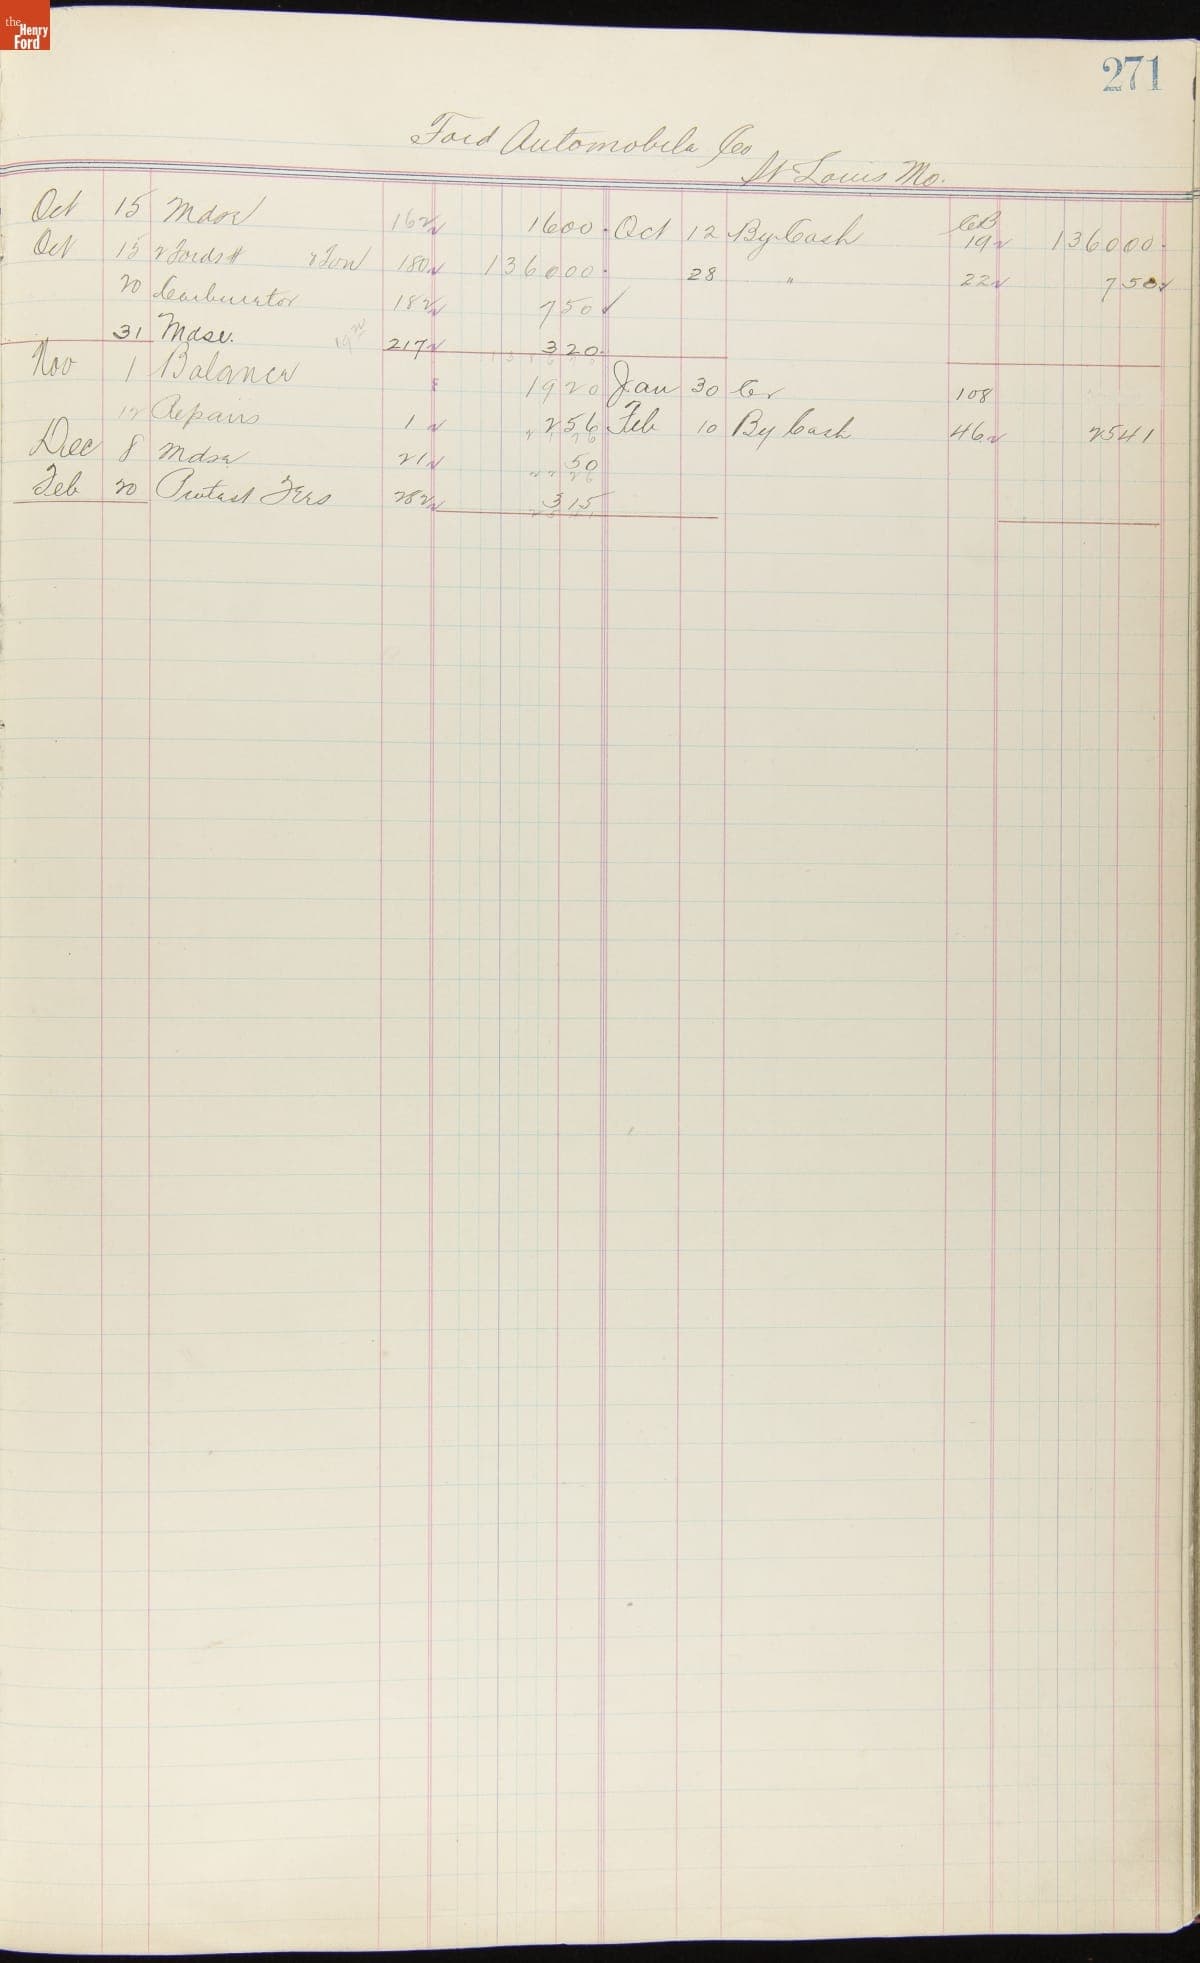 the
Henry
Ford
271
Ford Automobile Co
St Louis Mo.
Oct 15 Mdse 162 1600 Oct 12 By Cash CB 19 136000
Oct 15 2 Fords # 180 136000 28 " 22 750
20 Carburator 182 750
31 Mdse. 217 320
Nov 1 Balance 1920 Jan 30 Cr 108
12 Repairs 1 256 Feb 10 By Cash 46 2541
Dec 8 Mdse 21 50
Feb 20 Protest Fees 282 315